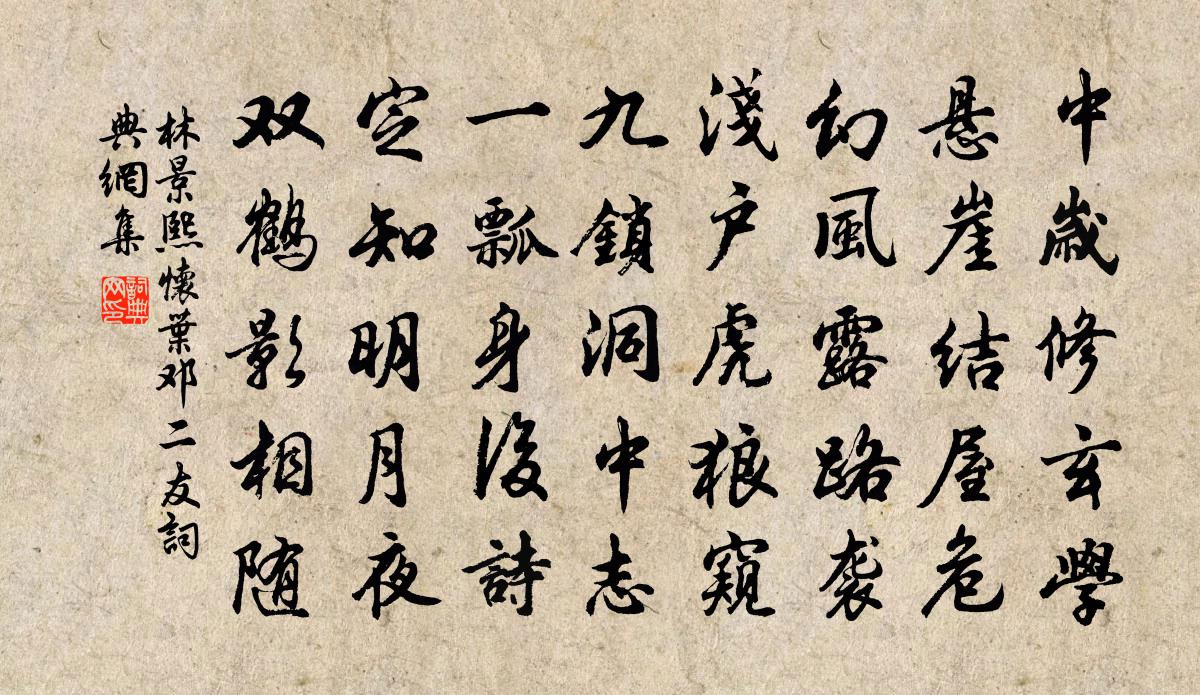 中歲修玄學
悬崖结屋危
幻風露路袭
淺戶虎狼窺
九鎖洞中志
一瓢身後詩
定知明月夜
双鶴影相随
林景熙懷葉邓二友詞
典網集
詞典
网印